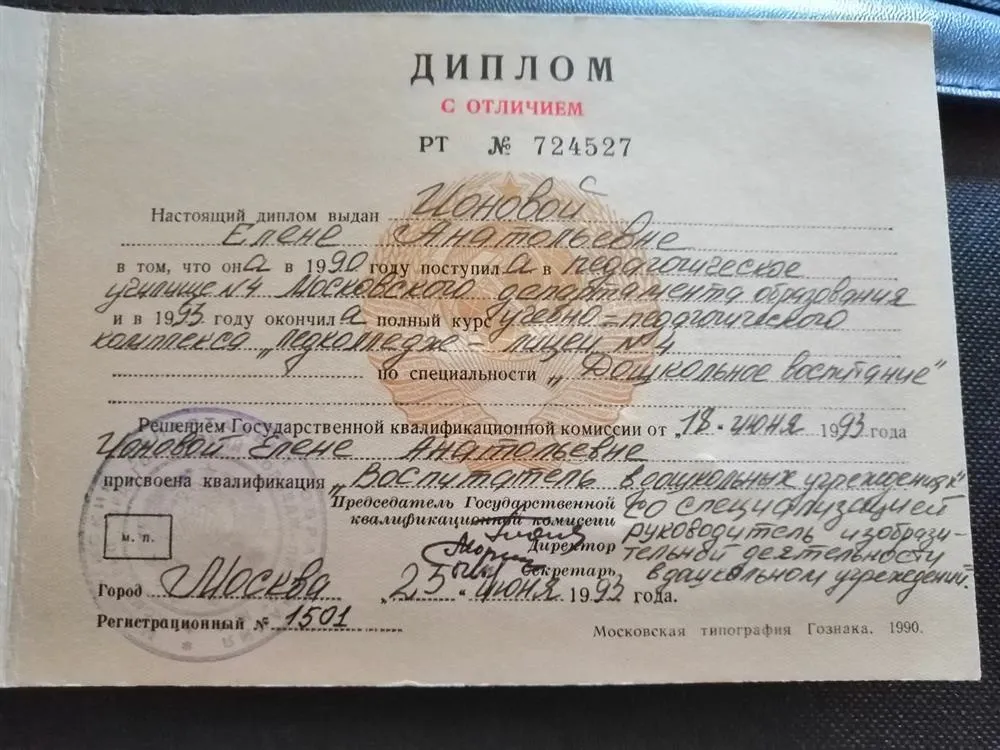 ДИПЛОМ
С ОТЛИЧИЕМ
РТ № 724527
Настоящий диплом выдан Ионовой
Елене Анатольевне
в том, что она в 1990 году поступила в педагогическое
училище №4 Московского департамента образования
и в 1993 году окончила полный курс учебно-педагогического
комплекса „педколледже - лицеи №4
по специальности „Дошкольное воспитание"
Решением Государственной квалификационной комиссии от „18" июня 1993 года
Ионовой Елене Анатольевне
присвоена квалификация „Воспитатель в дошкольных учреждениях"
Председатель Государственной со специализацией
квалификационной комиссии руководитель изобрази-
Директор тельной деятельности
Секретарь в дошкольном учреждении.
м. п.
Город Москва „25" июня 1993 года.
Регистрационный № 1501
Московская типография Гознака. 1990.